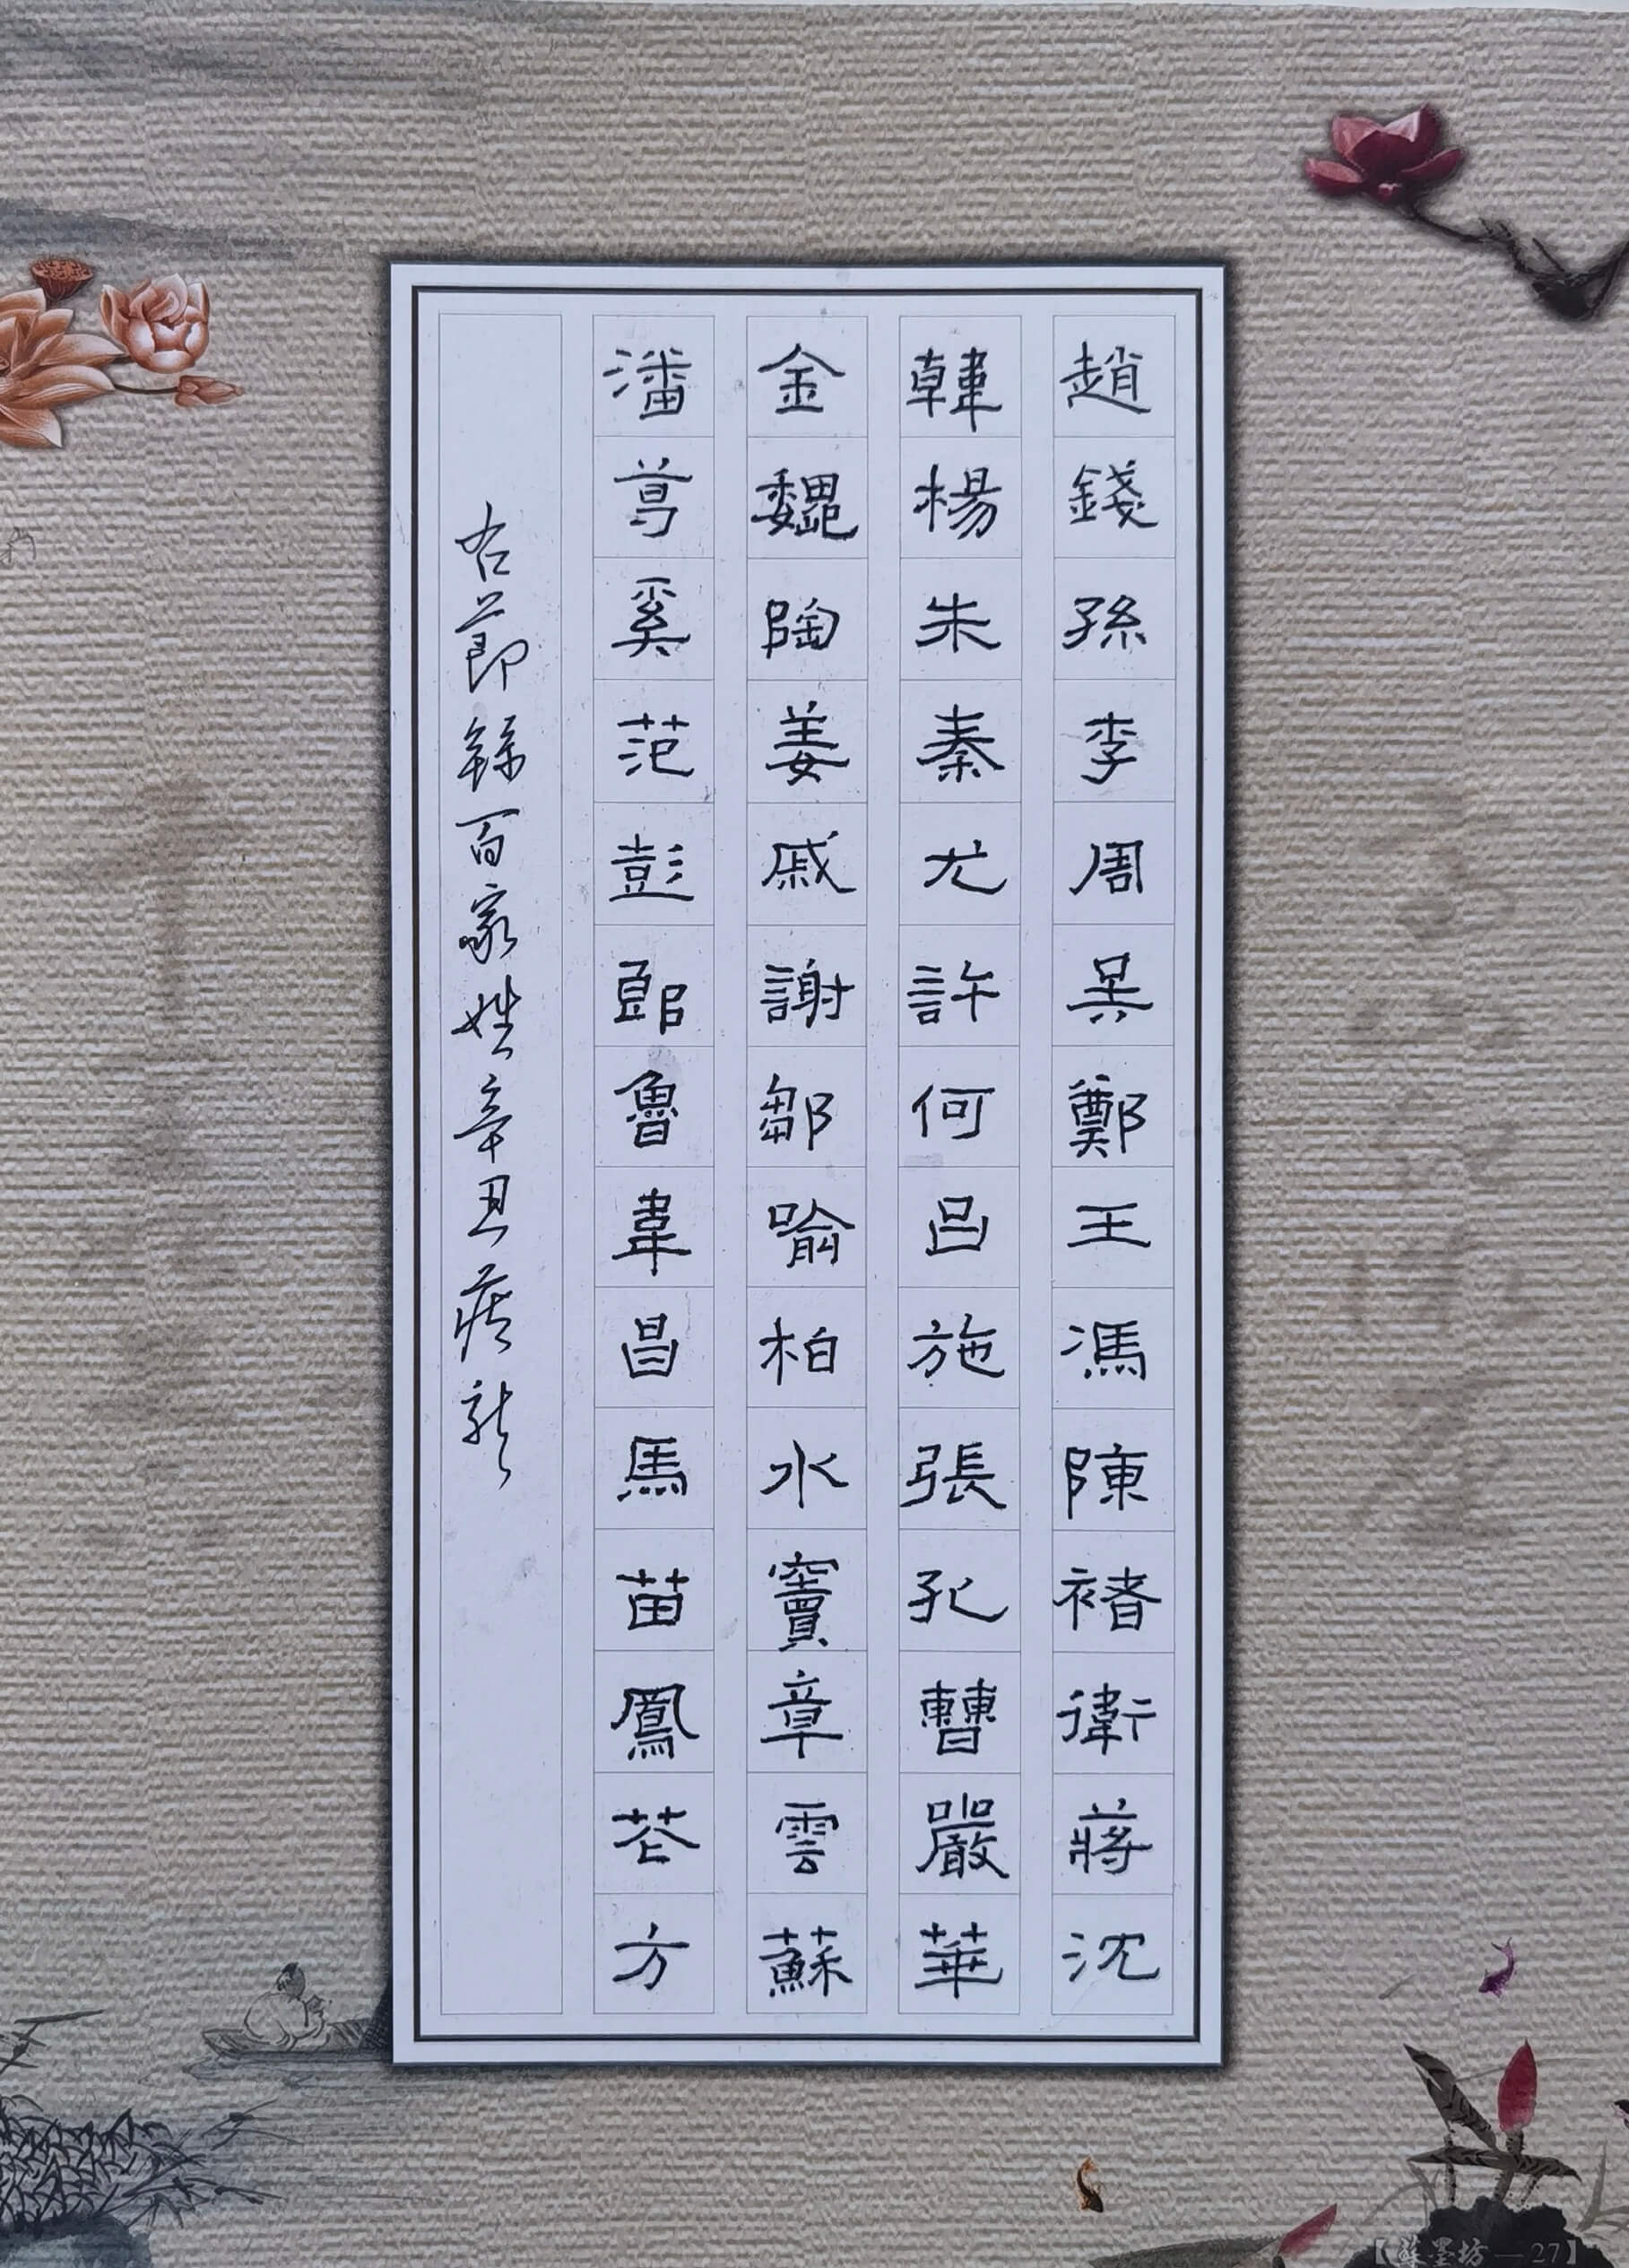 趙錢孫李周吳鄭王馮陳褚衛蔣沈
韓楊朱秦尤許何呂施張孔曹嚴華
金魏陶姜戚謝鄒喻柏水竇章雲蘇
潘葛奚范彭郎魯韋昌馬苗鳳花方
右節錄百家姓辛丑
墨坊—27】